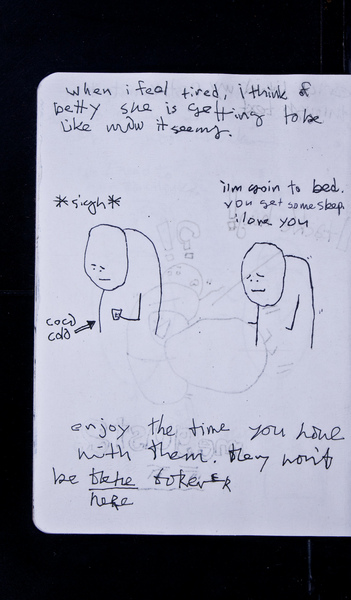 when i feel tired, i think of
betty she is getting to be
like mdw it seems.
*sigh*
i'm goin to bed.
you get some sleep.
i love you
coco
cold
enjoy the time you have
with them. they won't
be forever
here